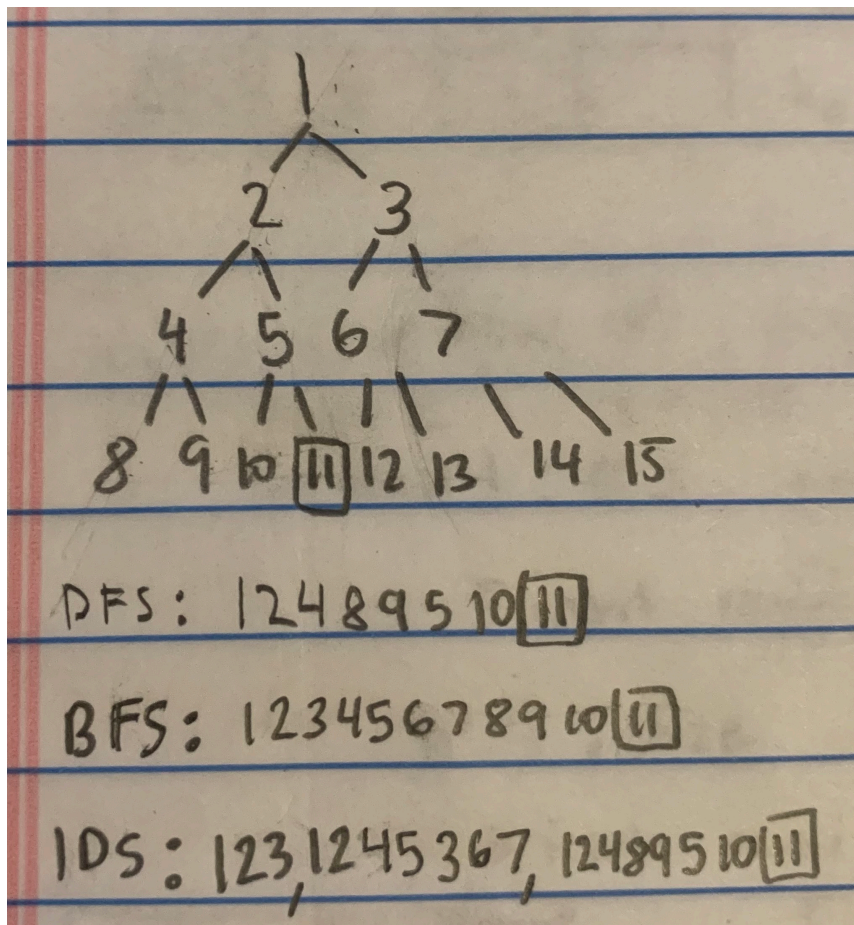 1
2 3
4 5 6 7
8 9 10 11 12 13 14 15
DFS: 1 2 4 8 9 5 10 11
BFS: 1 2 3 4 5 6 7 8 9 10 11
IDS: 1 2 3, 1 2 4 5 3 6 7, 1 2 4 8 9 5 10 11